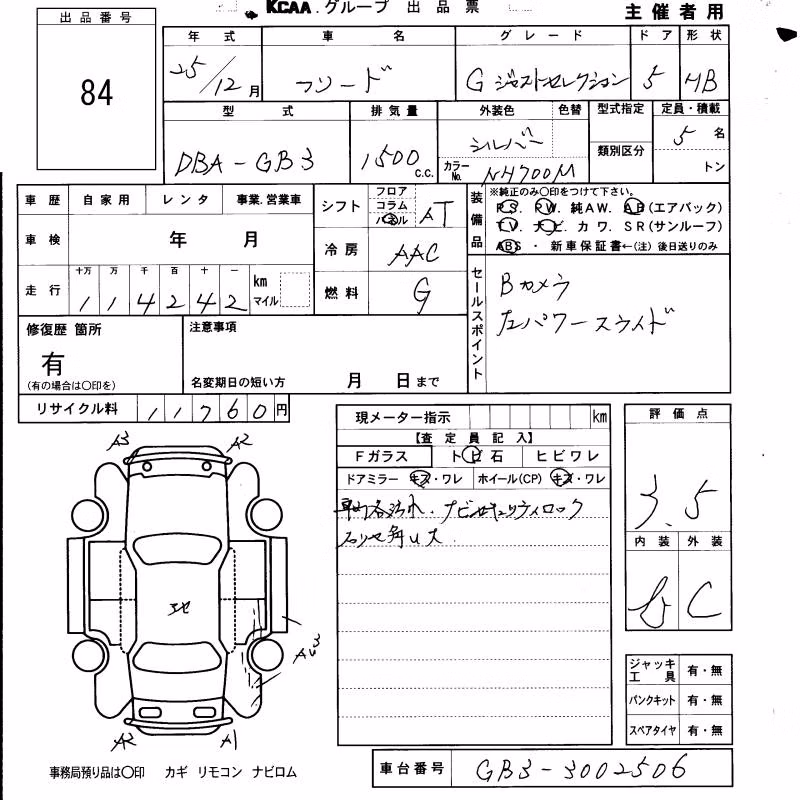 KCAA.グループ 出品票
主催者用
出品番号
84
年式 車名 グレード ドア 形状
25/12月 フリード G ジャストセレクション 5 HB
型式 排気量 外装色 色替 型式指定 定員・積載
DBA-GB3 1500 c.c. シルバー 5 名
カラーNo. NH700M 類別区分 トン
車歴 自家用 レンタ 事業.営業車
シフト フロア コラム パネル AT
装備品 ※純正のみ○印をつけて下さい。
P.S. P.W. 純AW. AB(エアバック)
T.V. ナビ. カワ. SR(サンルーフ)
ABS ・ 新車保証書←(注) 後日送りのみ
車検 年 月
冷房 AAC
走行 十万 万 千 百 十 一
114242 km マイル
燃料 G
セールスポイント
Bカメラ
左パワースライド
修復歴 箇所
有
(有の場合は○印を)
注意事項
名変期日の短い方 月 日まで
リサイクル料 11760円
現メーター指示 km
【査定員記入】
Fガラス トビ石 ヒビワレ
ドアミラー キズ・ワレ ホイール(CP) キズ・ワレ
ナビセキュリティロック
評価点
3.5
内装 外装
b C
A3 A2
A3
A2 A1
ジャッキ工具 有・無
パンクキット 有・無
スペアタイヤ 有・無
事務局預り品は○印 カギ リモコン ナビロム
車台番号 GB3-3002506